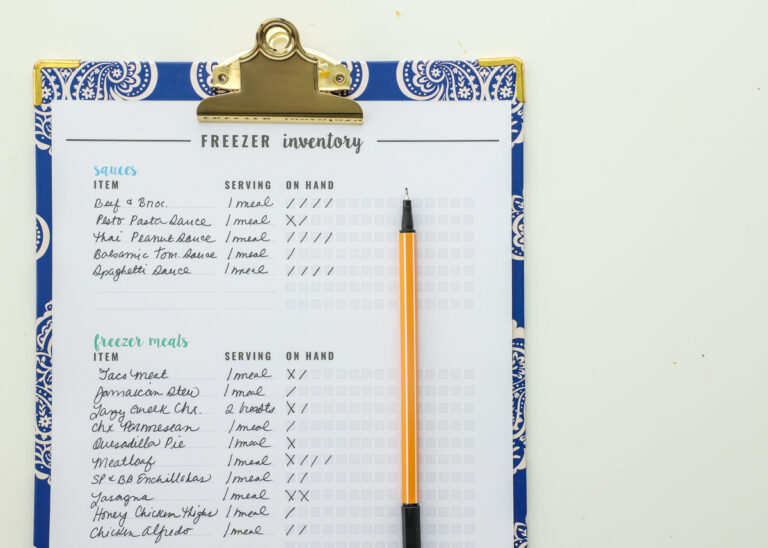 FREEZER inventory
sauces
ITEM SERVING ON HAND
Beef & Broc. 1 meal ////
Pesto Pasta Sauce 1 meal X/
Thai Peanut Sauce 1 meal ////
Balsamic Tom. Sauce 1 meal /
Spaghetti Sauce 1 meal ////
freezer meals
ITEM SERVING ON HAND
Taco Meat 1 meal X/
Jamaican Stew 1 meal /
Lazy Greek Chx. 2 breasts X/
Chx Parmesean 1 meal /
Quesadilla Pie 1 meal X
Meatloaf 1 meal X///
SP & BB Enchilladas 1 meal //
Lasagna 1 meal XX
Honey Chicken Thighs 1 meal /
Chicken Alfredo 1 meal //